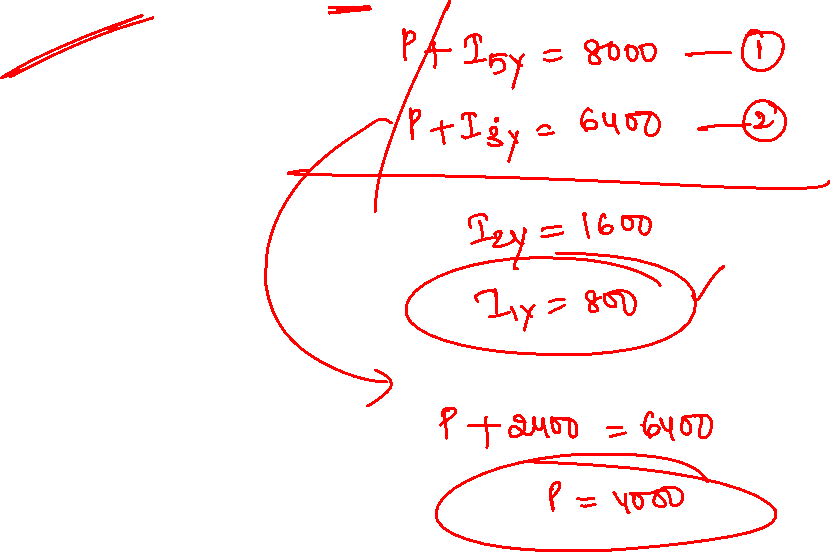 P + I5Y = 8000 — ①
P + I3Y = 6400 — ②
I2Y = 1600
I1Y = 800
P + 2400 = 6400
P = 4000